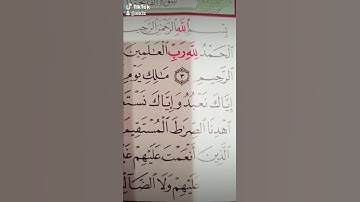 TikTok
بِسْمِ ٱللَّهِ ٱلرَّحْمَٰنِ ٱلرَّحِيمِ
ٱلْحَمْدُ لِلَّهِ رَبِّ ٱلْعَٰلَمِينَ
ٱلرَّحِيمِ ٣ مَٰلِكِ يَوْمِ
إِيَّاكَ نَعْبُدُ وَإِيَّاكَ نَسْتَ
ٱهْدِنَا ٱلصِّرَٰطَ ٱلْمُسْتَقِيمَ
ٱلَّذِينَ أَنْعَمْتَ عَلَيْهِمْ غَ
عَلَيْهِمْ وَلَا ٱلضَّآلِّ